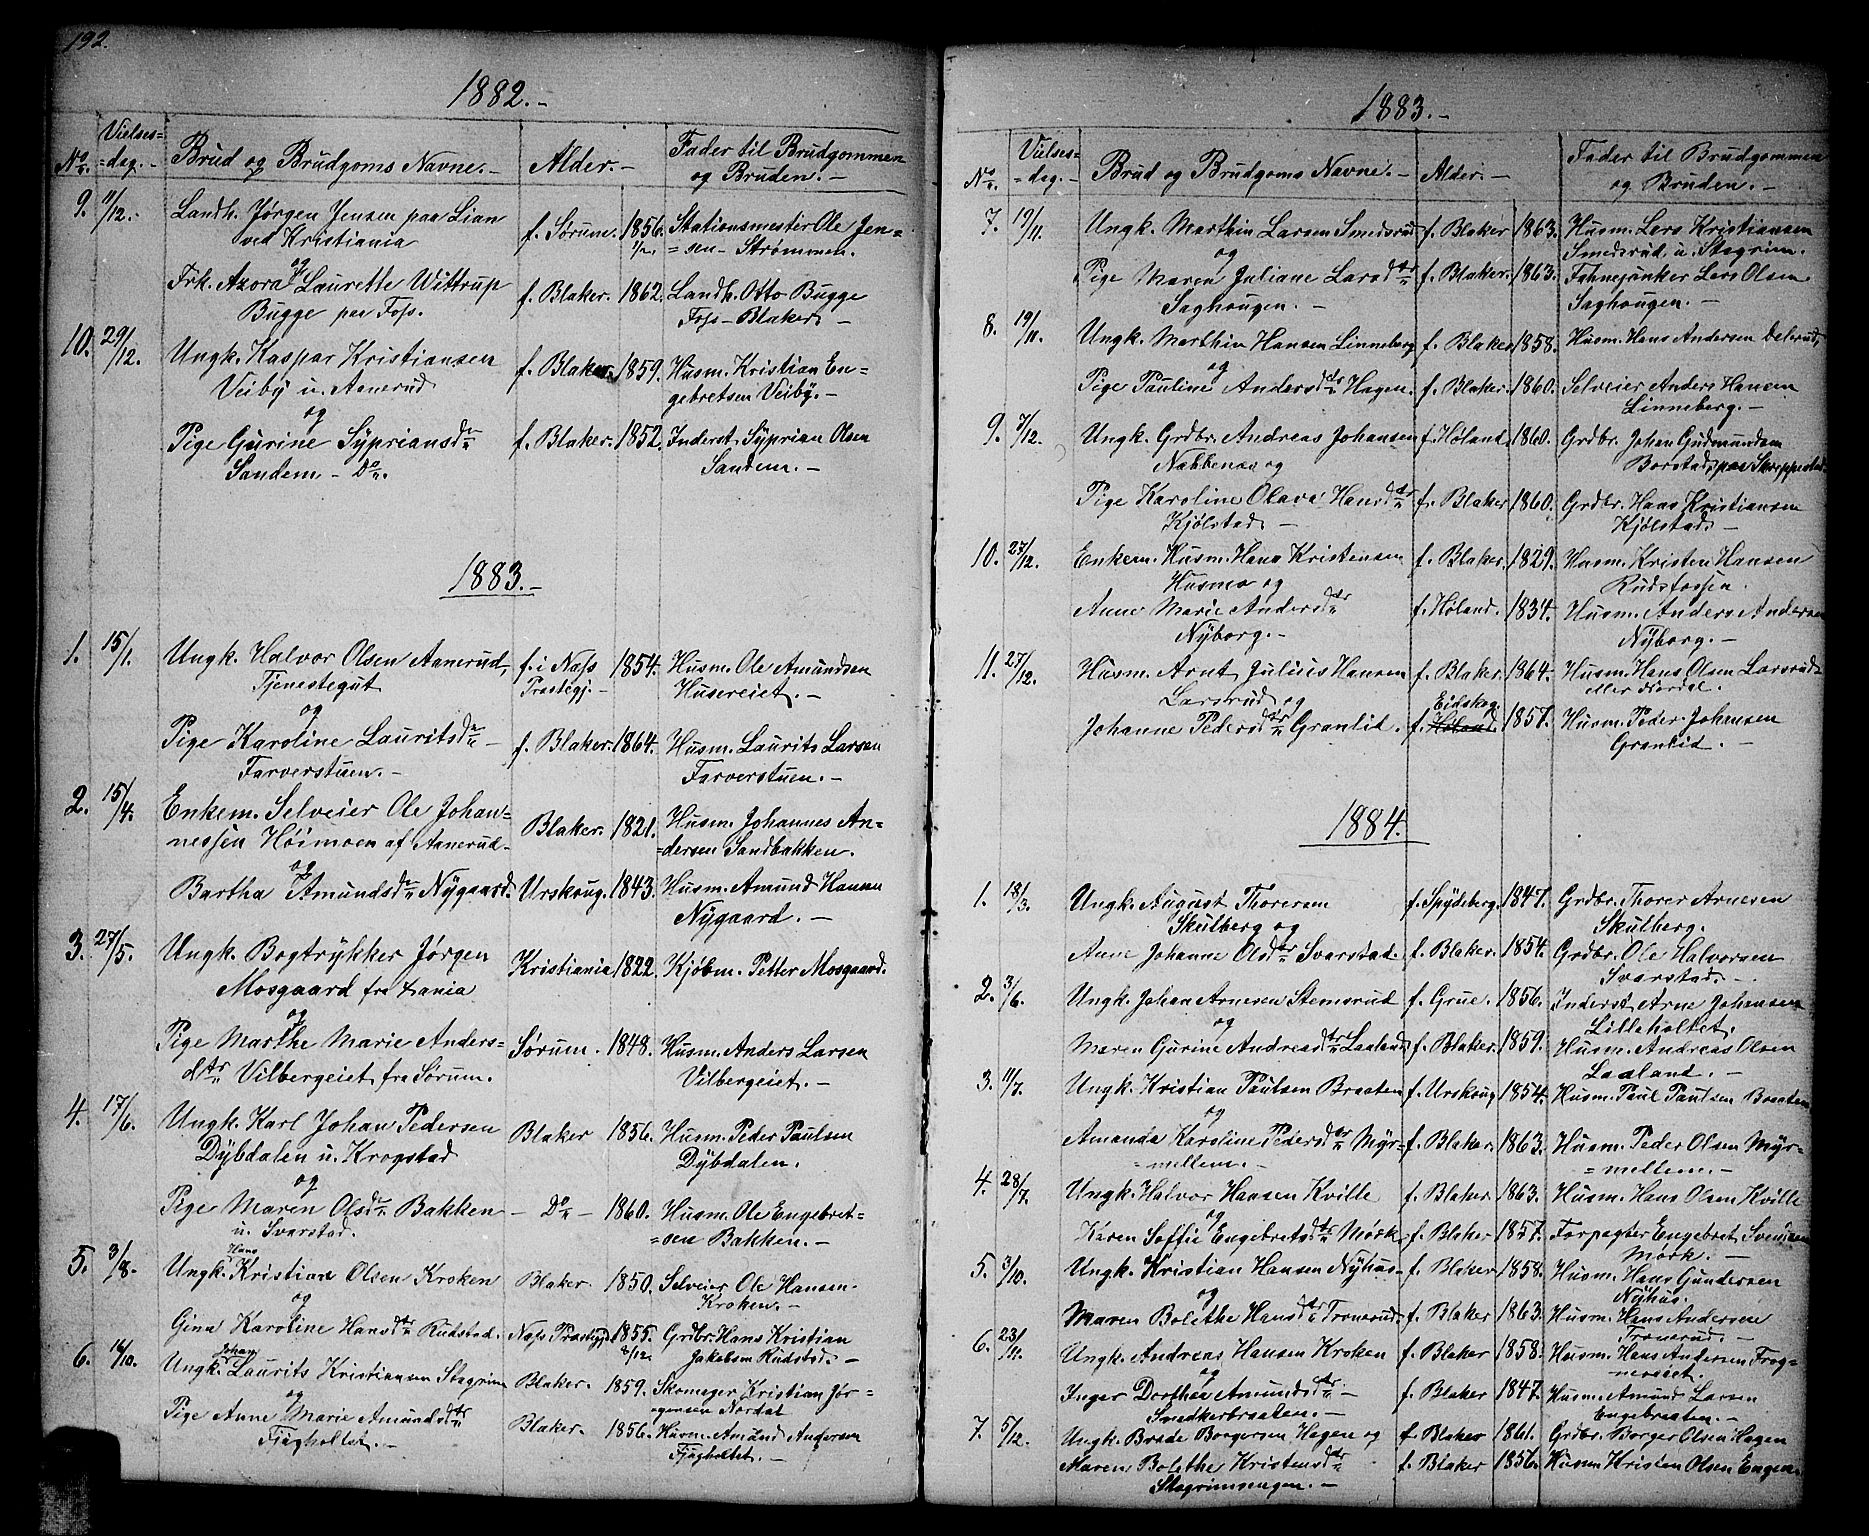 192.
1882.-
No. Vielses=dag.- Brud og Brudgoms Navne.- Alder.- Fader til Brudgommen og Bruden.-
9. 11/12. Landh. Jørgen Jensen paa Lian f. Sørum. 1856. Stationsmester Ole Jen=
ved Kristiania =sen - Strømmen.
og
Frk. Azora Laurette Wittrup f. Blaker. 1862. Landh. Otto Bugge
Bugge paa Foss. Foss - Blaker. -
10. 29/12. Ungk. Kaspar Kristiansen f. Blaker. 1859. Husm. Kristian En=
Veiby u. Aanerud gebretsen Veiby. -
og
Pige Gurine Sypriansdr f. Blaker. 1852. Inderst Syprian Olsen
Sandem. - Do. Sandem. -
1883.-
1. 15/1. Ungk. Halvor Olsen Aanerud, f. i Næss 1854. Husm. Ole Amundsen
Tjenestegut Præstegj. - Husereiet. -
og
Pige Karoline Lauritsdr - f. Blaker. 1864. Husm. Laurits Larsen
Farverstuen. - Farverstuen. -
2. 15/4. Enkem. Selveier Ole Johan= Blaker. 1821. Husm. Johannes An=
nessen Høimoen af Aanerud- =dersen Sandbakken.
og
Bartha Amundsdr Nygaard. Urskoug. 1843. Husm. Amund Hansen
Nygaard. -
3. 27/5. Ungk. Bogtrykker Jørgen Kristiania 1822. Kjøbm. Petter Mosgaard.
Mosgaard fra Xania
og
Pige Marthe Marie Anders- Sørum. 1848. Husm. Anders Larsen
dtr Vilbergeiet fra Sørum. Vilbergeiet. -
4. 17/6. Ungk. Karl Johan Pedersen Blaker 1856. Husm. Peder Paulsen
Dybdalen u. Krogstad Dybdalen.
og
Pige Maren Olsdr Bakken - Do - 1860. Husm. Ole Engebret=
u. Svarstad. =sen Bakken. -
5. 3/8. Ungk. Hans Kristian Olsen Kroken Blaker. 1850. Selveier Ole Hansen
og Kroken. -
Gina Karoline Hansdr Rudstad. Næss Præstegj. 1855. Grdbr. Hans Kristian
8/12. Jakobsen Rudstad. -
6. 14/10. Ungk. Johan Laurits Kristiansen Stagrim Blaker. 1859. Skomager Kristian Jør=
og =gensen Nordal
Pige Anne Marie Amundsdtr Blaker. 1856. Husm. Amund Andersen
Fjøgholtet. - Fjøgholtet. -
1883.-
No. Vielses=dag.- Brud og Brudgoms Navne.- Alder.- Fader til Brudgommen og Bruden.-
7. 19/11. Ungk. Marthin Larsen Smedsrud f. Blaker 1863. Husm. Lars Kristiansen
og Smedsrud u. Stagrim.
Pige Maren Juliane Larsdtr f. Blaker. 1863. Fahnejunker Lars Olsen
Saghougen. - Saghougen. -
8. 19/11. Ungk. Marthin Hansen Linneberg f. Blaker 1858. Husm. Hans Andersen
og
Pige Pauline Andersdtr Hagen. f. Blaker. 1860. Selveier Anders Hansen
Linneberg. -
9. 7/12. Ungk. Grdbr. Andreas Johansen f. Høland. 1860. Grdbr. Johan Gudmundsen
og Borstad, paa
Pige Karoline Olava Hansdtr f. Blaker 1860. Grdbr. Hans Kristiansen
Kjølstad. - Kjølstad. -
10. 27/12. Enkem. Husm. Hans Kristensen f. Blaker. 1829. Husm. Kristen Hansen
Husmo og Rudsfossen.
Anne Marie Andersdtr f. Høland. 1834. Husm. Anders Andersen
Nyborg. - Nyborg. -
11. 27/12. Husm. Arnt Julius Hansen f. Blaker. 1864. Husm. Hans Olsen Larsrud
Larsrud og eller Nordal.
Eidskog
Johanne Pedersdtr Granlid. f. Høland. 1857. Husm. Peder Johansen
Granlid. -
1884.
1. 18/3. Ungk. August Thoresen f. Spydeberg. 1847. Grdbr. Thorer Arnesen
Skulberg og Skulberg.
Anne Johanne Olsdtr Svarstad. f. Blaker. 1854. Grdbr. Ole Halvorsen
Svarstad. -
2. 3/6. Ungk. Johan Arnesen Stemsrud f. Grue. 1856. Inderst Arne Johansen
og Lilleholtet.
Maren Gurine Andreasdtr Laaland f. Blaker. 1859. Husm. Andreas Olsen
Laaland. -
3. 11/7. Ungk. Kristian Paulsen Braaten f. Urskoug 1854. Husm. Paul Paulsen Braaten
og
Amanda Karoline Pedersdtr Myr= f. Blaker. 1863. Husm. Peder Olsen Myr=
=mellem. - =mellem. -
4. 28/7. Ungk. Halvor Hansen Kville f. Blaker. 1863. Husm. Hans Olsen Kville
og
Karen Soffie Engebretsdtr Mørk f. Blaker 1857. Forpagter Engebret Svendsen
Mørk. -
5. 3/10. Ungk. Kristian Hansen Nyhus f. Blaker 1858. Husm. Hans Gundersen
og Nyhus.
Maren Bolethe Hansdtr Tronerud. f. Blaker 1863. Husm. Hans Andersen
Tronerud. -
6. 23/11. Ungk. Andreas Hansen Kroken f. Blaker 1858. Husm. Hans Andersen Frog=
og nereiet.
Inger Dorthea Amundsdtr - f. Blaker. 1847. Husm. Amund Larsen
Snedkerbraaten. - Engebraaten. -
7. 5/12. Ungk. Brede Borgersen Hagen og f. Blaker 1861. Grdbr. Borger Olsen Hagen
Maren Bolethe Kristensdtr f. Blaker 1856. Husm. Kristen Olsen Engen.
Stagrimsengen. -